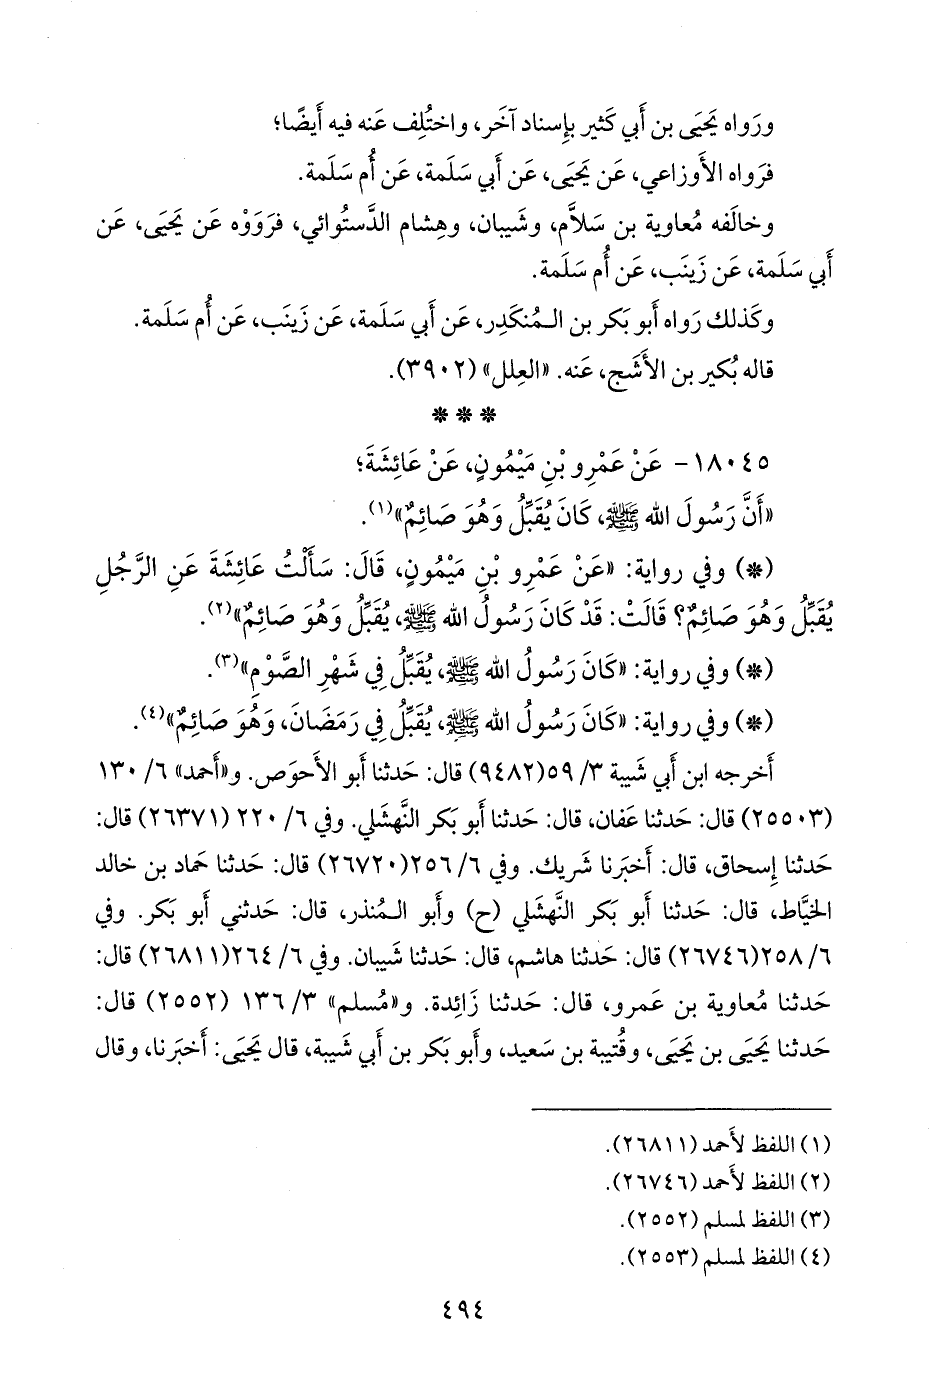 ورَواه يَحيَى بن أَبي كَثير بإِسناد آخَر، واختُلِف عَنه فيه أَيضًا؛
فرَواه الأَوزاعي، عَن يَحيَى، عَن أَبي سَلَمة، عَن أُم سَلَمة.
وخالَفه مُعاوية بن سَلاَّم، وشَيبان، وهِشام الدَّستُوائي، فرَوَوْه عَن يَحيَى، عَن
أَبي سَلَمة، عَن زَينَب، عَن أُم سَلَمة.
وكَذلك رَواه أَبو بَكر بن الـمُنكَدِر، عَن أَبي سَلَمة، عَن زَينَب، عَن أُم سَلَمة.
قاله بُكير بن الأَشَج، عَنه. «العِلل» (٣٩٠٢).
* * *
١٨٠٤٥- عَنْ عَمْرِو بْنِ مَيْمُونٍ، عَنْ عَائِشَةَ؛
«أَنَّ رَسُولَ الله ﷺ، كَانَ يُقَبِّلُ وَهُوَ صَائِمٌ»(١).
(*) وفي رواية: «عَنْ عَمْرِو بْنِ مَيْمُونٍ، قَالَ: سَأَلْتُ عَائِشَةَ عَنِ الرَّجُلِ
يُقَبِّلُ وَهُوَ صَائِمٌ؟ قَالَتْ: قَدْ كَانَ رَسُولُ الله ﷺ، يُقَبِّلُ وَهُوَ صَائِمٌ»(٢).
(*) وفي رواية: «كَانَ رَسُولُ الله ﷺ، يُقَبِّلُ فِي شَهْرِ الصَّوْمِ»(٣).
(*) وفي رواية: «كَانَ رَسُولُ الله ﷺ، يُقَبِّلُ فِي رَمَضَانَ، وَهُوَ صَائِمٌ»(٤).
أَخرجه ابن أَبي شَيبة ٣/ ٥٩(٩٤٨٢) قال: حَدثنا أَبو الأَحوَص. و«أَحمد» ٦/ ١٣٠
(٢٥٥٠٣) قال: حَدثنا عَفان، قال: حَدثنا أَبو بَكر النَّهشَلي. وفي ٦/ ٢٢٠ (٢٦٣٧١) قال:
حَدثنا إِسحاق، قال: أَخبَرنا شَريك. وفي ٦/ ٢٥٦(٢٦٧٢٠) قال: حَدثنا حَماد بن خالد
الخَيَّاط، قال: حَدثنا أَبو بَكر النَّهشَلي (ح) وأَبو الـمُنذر، قال: حَدثني أَبو بَكر. وفي
٦/ ٢٥٨(٢٦٧٤٦) قال: حَدثنا هاشم، قال: حَدثنا شَيبان. وفي ٦/ ٢٦٤(٢٦٨١١) قال:
حَدثنا مُعاوية بن عَمرو، قال: حَدثنا زَائِدة. و«مُسلم» ٣/ ١٣٦ (٢٥٥٢) قال:
حَدثنا يَحيَى بن يَحيَى، وقُتيبة بن سَعيد، وأَبو بَكر بن أَبي شَيبة، قال يَحيَى: أَخبَرنا، وقال
(١) اللفظ لأَحمد (٢٦٨١١).
(٢) اللفظ لأَحمد (٢٦٧٤٦).
(٣) اللفظ لمسلم (٢٥٥٢).
(٤) اللفظ لمسلم (٢٥٥٣).
٤٩٤